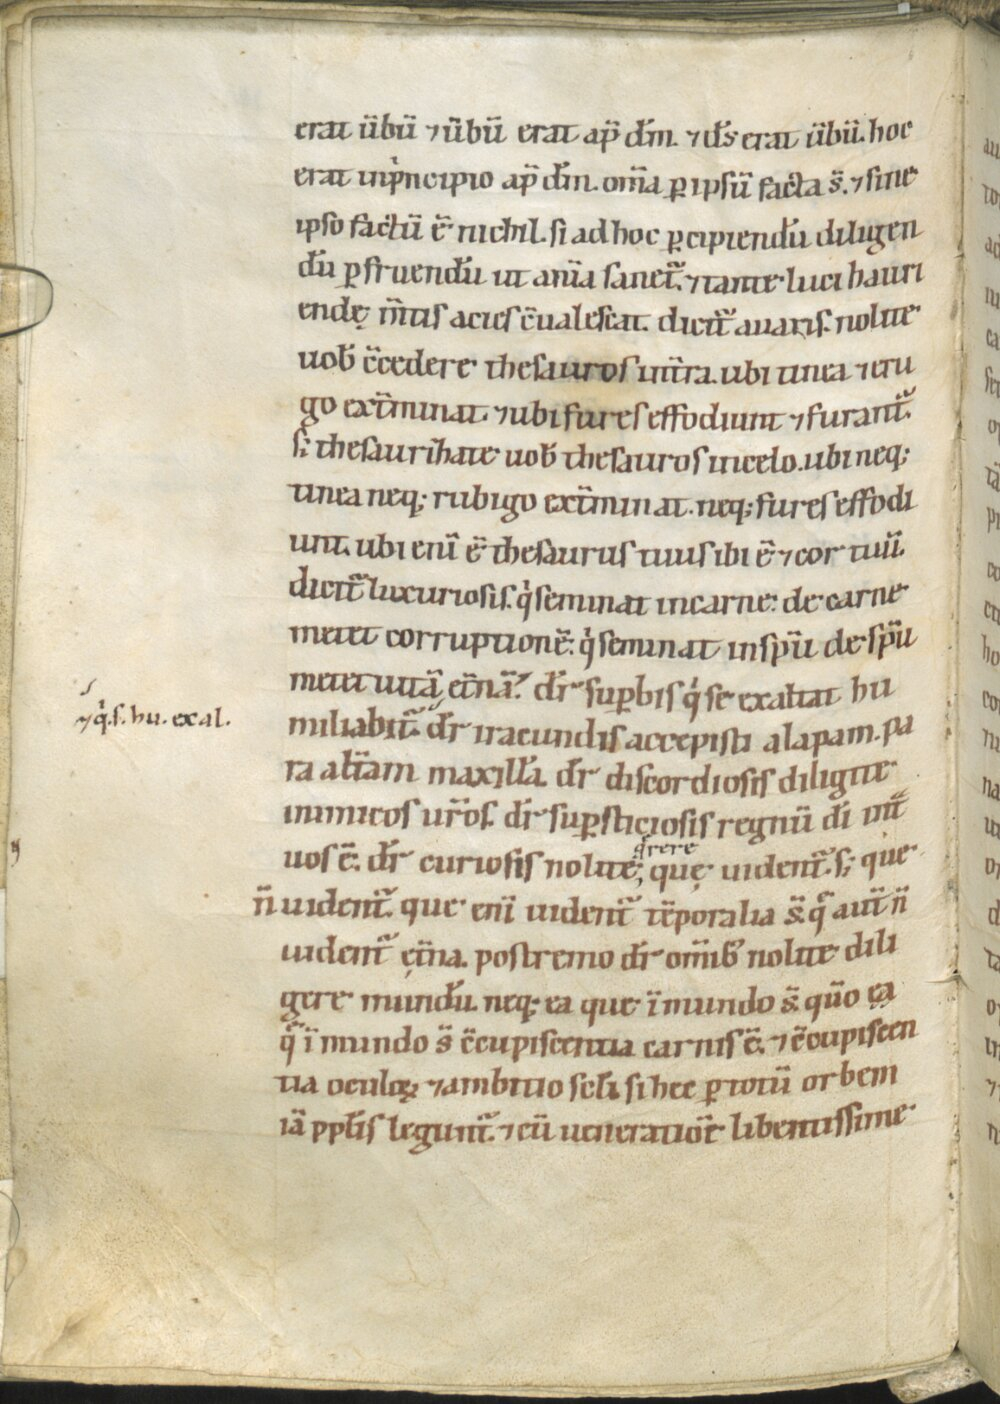 erat ůbū ⁊ ůbū erat ap̄ dm̄. ⁊ ds̄ erat ůbū. hoc
erat inpͥncipio ap̄ dm̄. om̄a ꝑ ipsū facta s̄. ⁊ sine
ipso factū ē nichil. si ad hoc ꝑcipiendū diligen
dū ꝑfruendū ut anīa sanet᷑. ⁊ tantę luci hauri
endę m̄tis acies c̄ualescat. dicit᷑ auaris. nolite
uob̄ c̄cedere thesauros int̄ra. ubi tinea ⁊ eru
go ext̄minat. ⁊ ubi fures effodiunt ⁊ furant᷑.
s; thesaurihate uob̄ thesauros incelo. ubi neq;
tinea neq; rubigo ext̄minat. neq; fures effodi
unt. ubi enī ē thesaurus tuus ibi ē ⁊ cor tuū.
dicit᷑ luxuriosis. qͥ seminat incarne: de carne
metet corruptionē: qͥ seminat inspū de spū
metet uitā et̄nā. dr̄ suꝑbis qͥ se exaltat hu
miliabit᷑. dr̄ iracundis accepisti alapam. pa
⁊ qͥ. s. hu. exal.
ra alt̄am maxillā. dr̄ discordiosis diligite
inimicos ur̄os. dr̄ suꝑsticiosis regnū dī int̄
uos ē. dr̄ curiosis nolite qͬrere quę uident᷑. s; que
n̄ uident᷑. que enī uident᷑ tēporalia s̄. q̄ aut̄ n̄
uident᷑ ęt̄na. postremo dr̄ om̄ib; nolite dili
gere mundū. neq; ea que ī mundo s̄. qūo ea
q̄ ī mundo s̄ c̄cupiscentia carnis ē. ⁊ c̄cupiscen
tia oculoꝝ ⁊ ambitio sc̄li. si hec ꝑ totū orbem
iā ppl̄is legunt᷑. ⁊ cū ueneratiōe libentissime